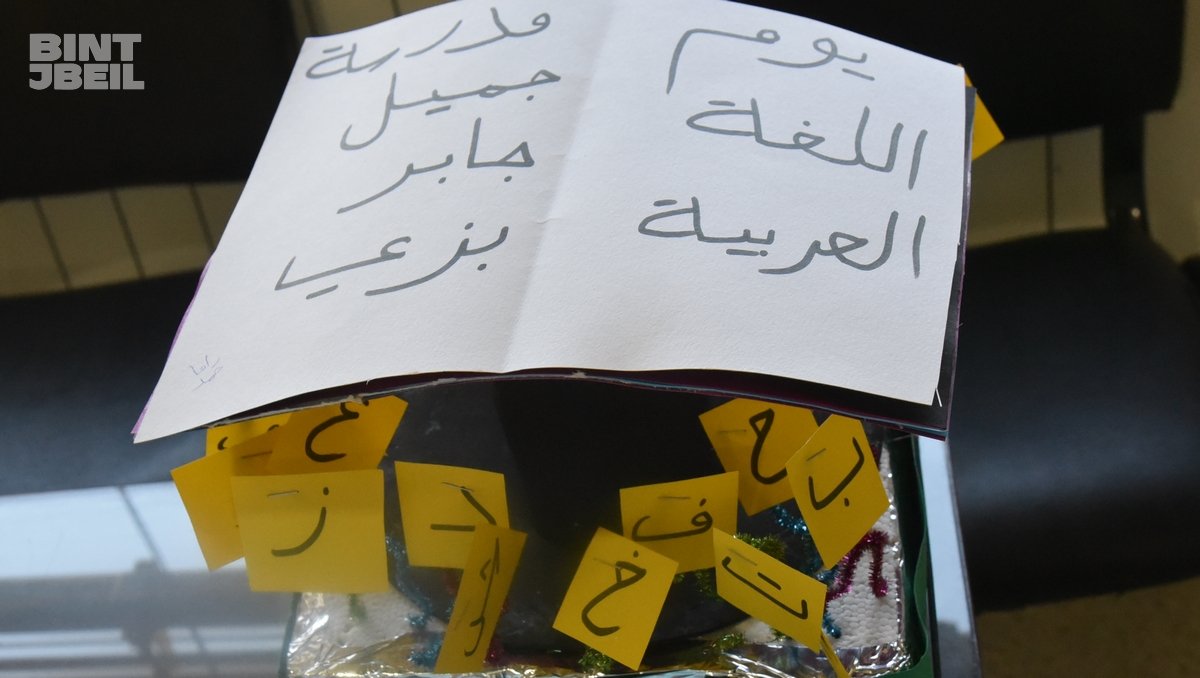 BINT
JBEIL
يوم
اللغة
العربية
مارية
جميل
جابر
بزعي
ح
ب
ف
ز
خ
ت